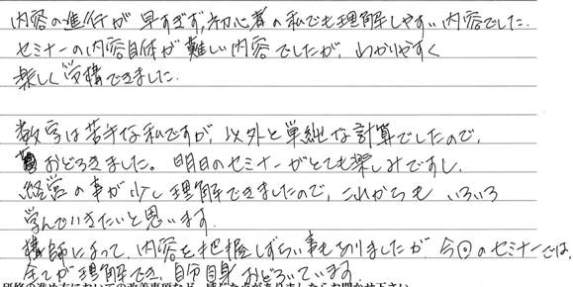 内容の進行が早すぎず、初心者の私でも理解しやすい内容でした。
セミナーの内容自体が難しい内容でしたが、わかりやすく
楽しく受講できました。
数字は苦手な私ですが、以外と単純な計算でしたので、
おどろきました。明日のセミナーがとても楽しみですし、
経営の事が少し理解できましたので、これからも いろいろ
学んでいきたいと思います。
講師によって、内容を把握しずらい事もありましたが 今回のセミナーでは、
全てが理解でき、自分自身おどろいています。